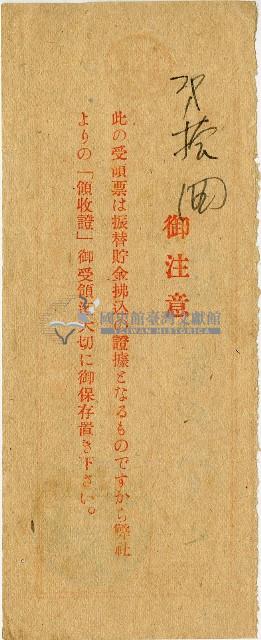 拾圓
御注意
此の受領票は振替貯金拂込の證據となるものですから弊社
よりの「領收證」御受領迄大切に御保存置き下さい。
國史館臺灣文獻館
TAIWAN HISTORICA